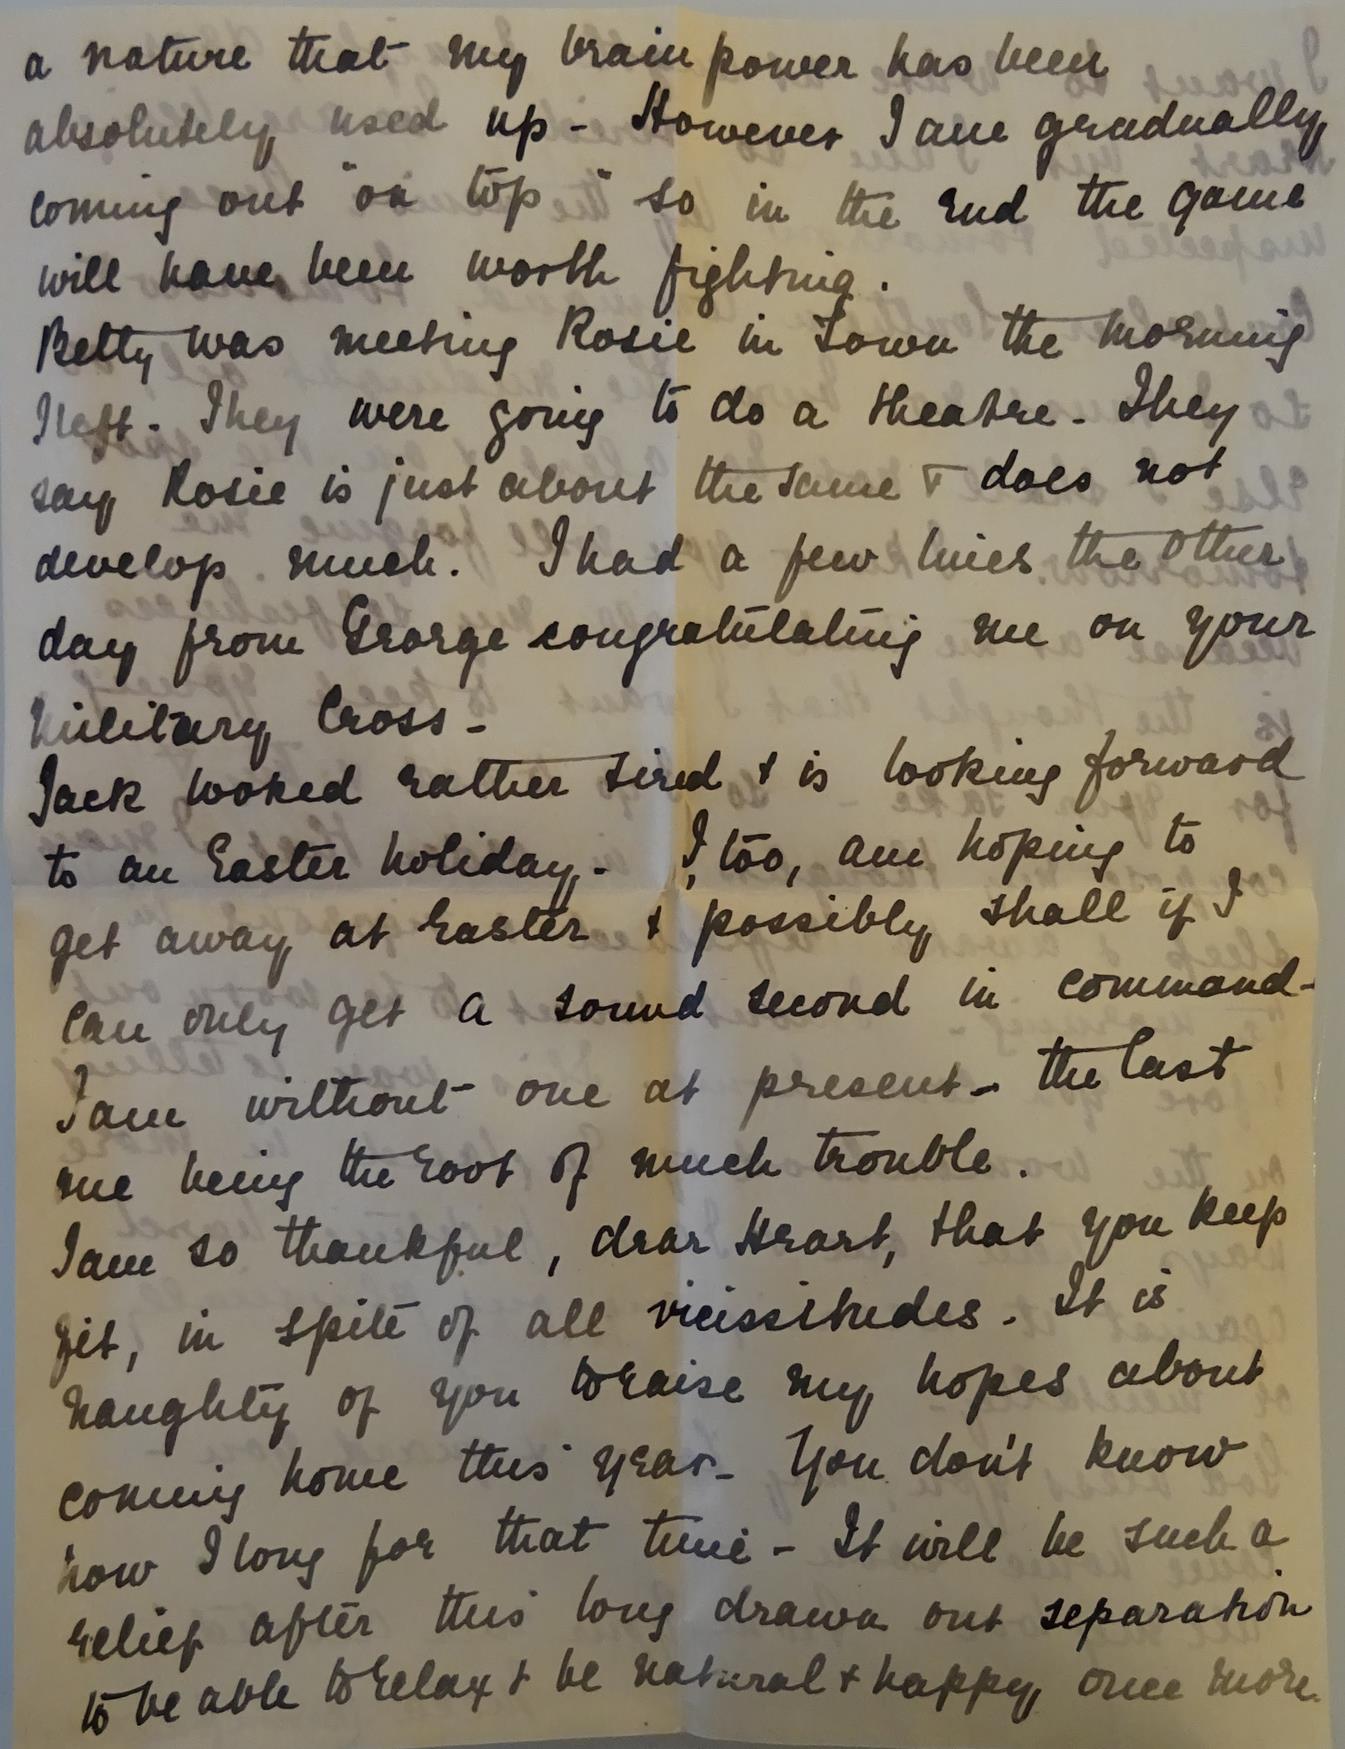 a nature that my brain power has been
absolutely used up - However I am gradually
coming out "on top" so in the end the game
will have been worth fighting.
Betty was meeting Rosie in Town the morning
I left. They were going to do a theatre - They
say Rosie is just about the same & does not
develop much. I had a few lines the other
day from George congratulating me on your
Military Cross -
Jack looked rather tired & is looking forward
to an Easter holiday. - I, too, am hoping to
get away at Easter & possibly shall if I
can only get a sound second in command -
I am without one at present - the last
one being the root of much trouble.
I am so thankful, dear Heart, that you keep
fit, in spite of all vicissitudes - It is
naughty of you to raise my hopes about
coming home this year - You don't know
how I long for that time - It will be such a
relief after this long drawn out separation
to be able to relax & be natural & happy once more.